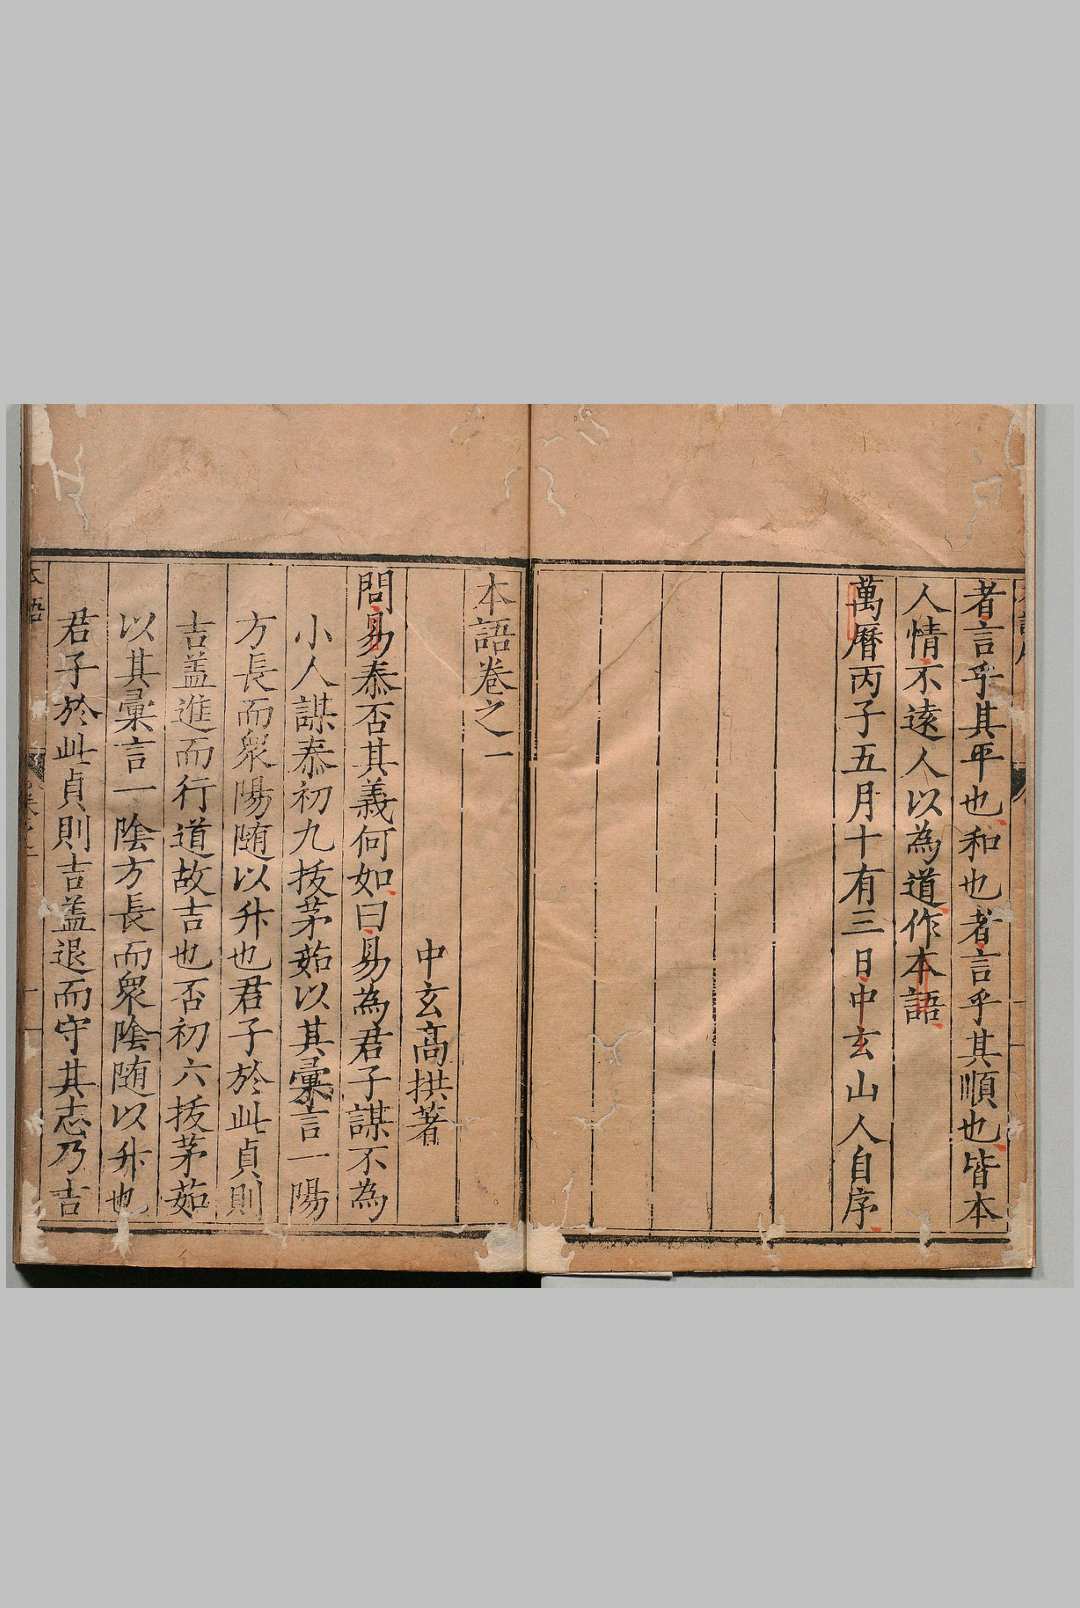 者言乎其平也和也者言乎其順也皆本
人情不遠人以為道作本語
萬曆丙子五月十有三日中玄山人自序
本語卷之一
中玄高拱著
問易泰否其義何如曰易為君子謀不為
小人謀泰初九拔茅茹以其彙言一陽
方長而衆陽随以升也君子於此貞則
吉盖進而行道故吉也否初六拔茅茹
以其彙言一陰方長而衆陰随以升也
君子於此貞則吉盖退而守其志乃吉
本語